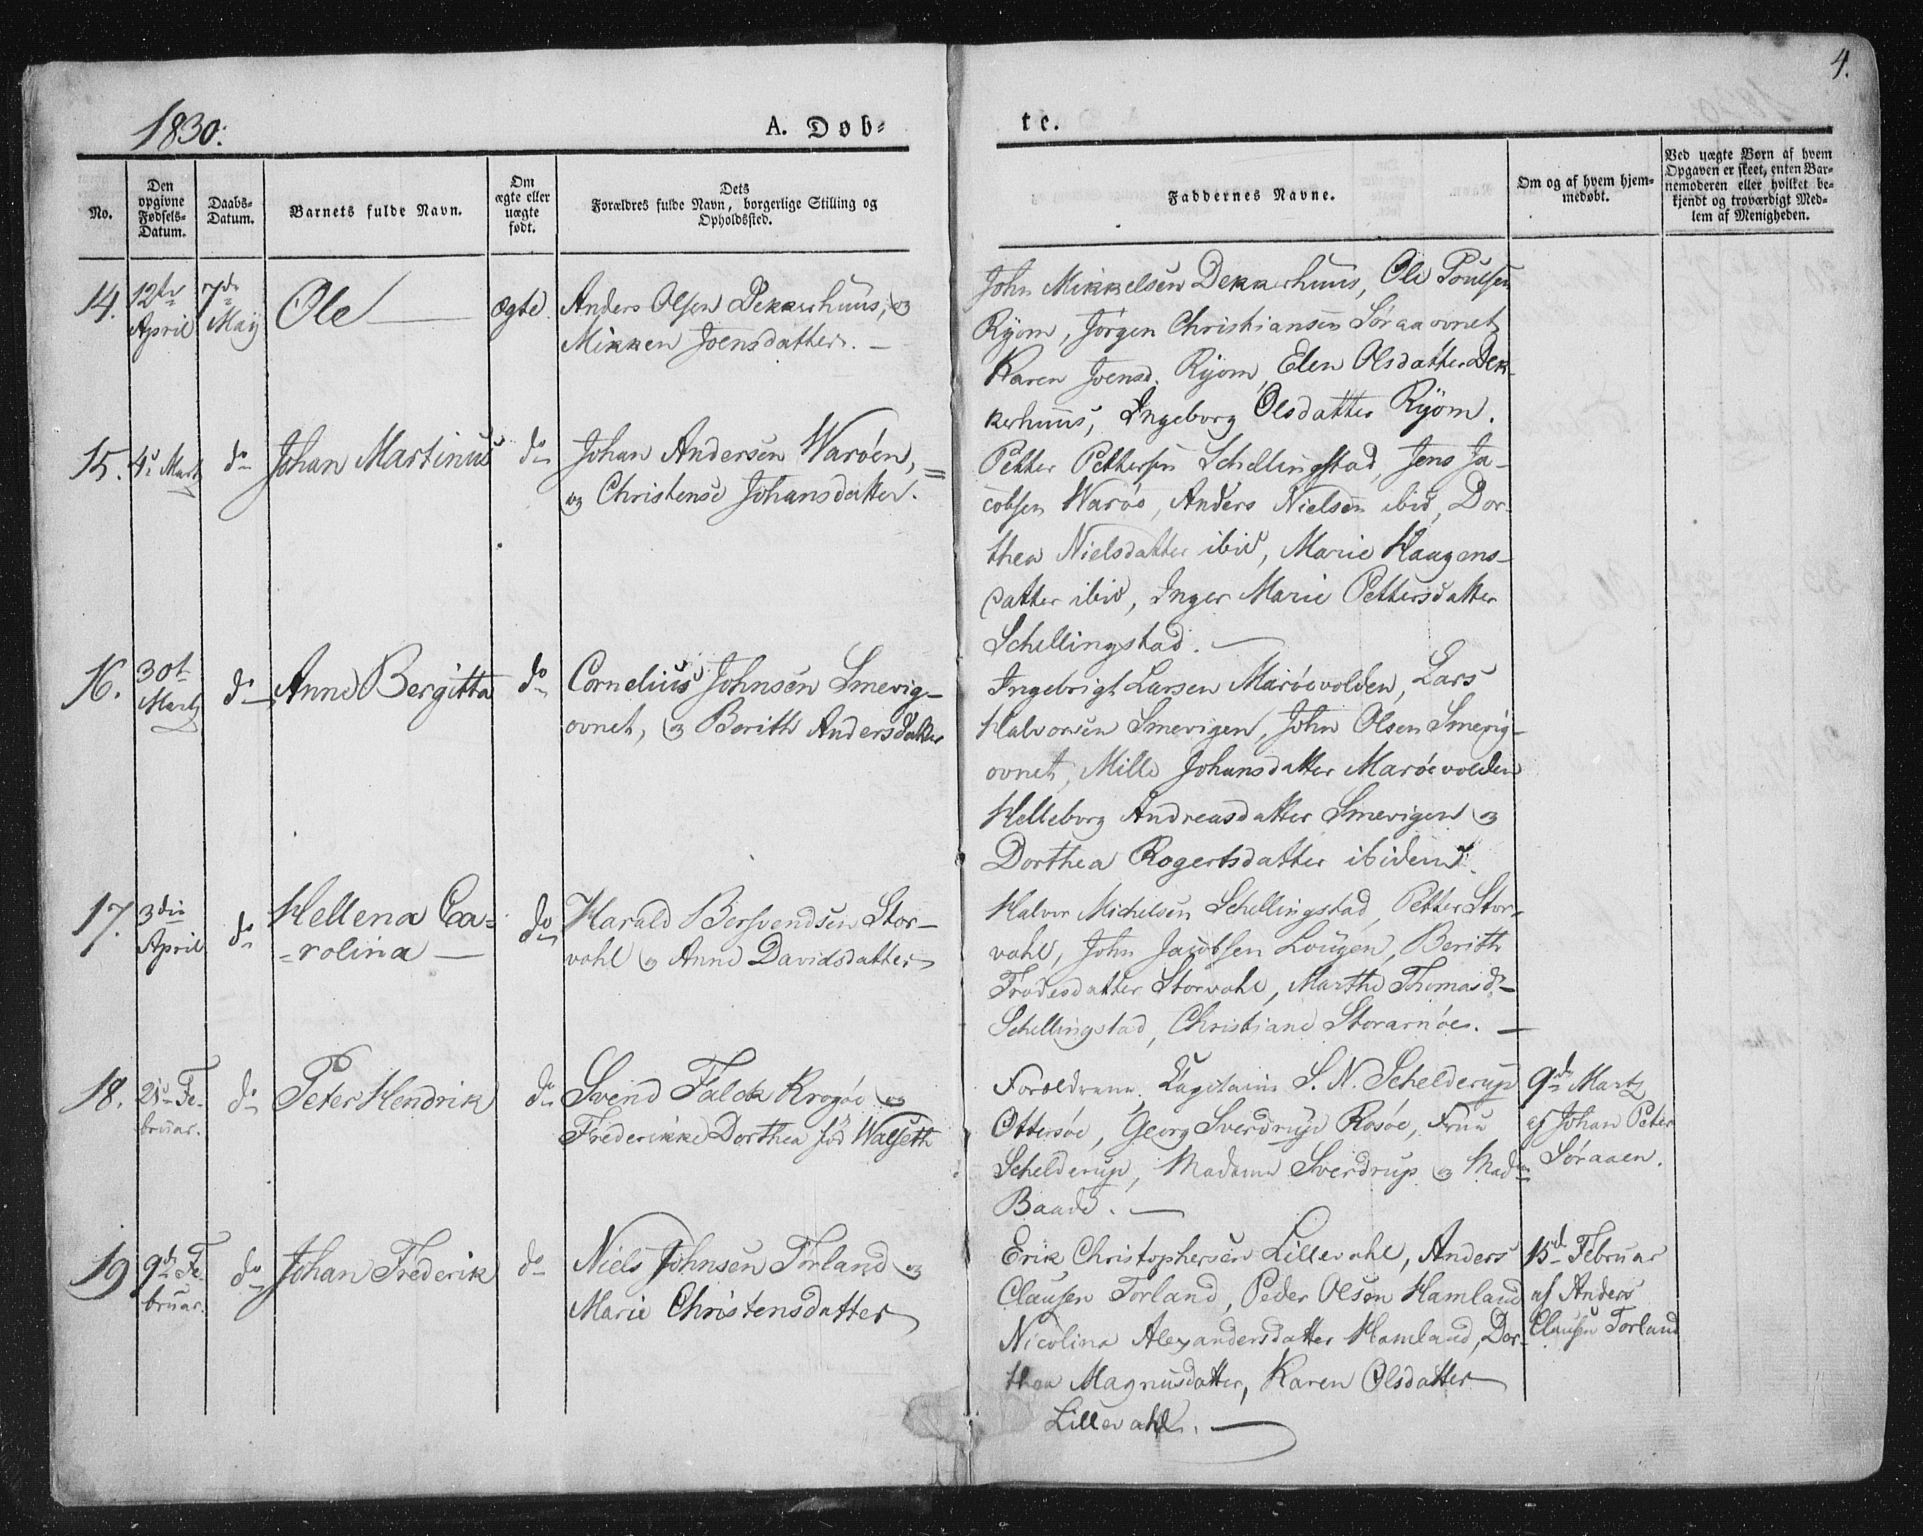 4.
1830.
A. Døb-
te.
No.
Den opgivne Fødsels-Datum.
Daabs-Datum.
Barnets fulde Navn.
Om ægte eller uægte født.
Dets Forældres fulde Navn, borgerlige Stilling og Opholdssted.
Faddernes Navne.
Om og af hvem hjem-medøbt.
Ved uægte Børn af hvem Opgaven er skeet, enten Bar-nemoderen eller hvilket be-kjendt og troværdigt Med-lem af Menigheden.
14. 12te April 7de Maij Ole ægte
Anders Olsen Dekkerhuus, og
Mikken Joensdatter. —
John Mikkelsen Dekkerhuus, Ole Poulsen
Ryom, Jørgen Christiansen Søraaovnet
Karen Joensd. Ryom, Elen Olsdatter Dek-
kerhuus, Ingeborg Olsdatter Ryom.
15. 4de Martz do Johan Martinus do
Johan Andersen Warøen,
og Christense Johansdatter.
Petter Pettersen Schellingstad, Jens Ja-
cobsen Warøe, Anders Nielsen ibid, Dor-
thea Nielsdatter ibid, Marie Haagens-
datter ibid, Inger Marie Pettersdatter
Schellingstad. —
16. 30t Martz do Anne Bergitta do
Cornelius Johnsen Smevig-
ovnet, og Berith Andersdatter
Ingebrigt Larsen Marøevolden, Lars
Halvorsen Smevigen, John Olsen Smevig-
ovnet, Mille Johansdatter Marøevolden
Helleborg Andreasdatter Smevigen og
Dorthea Rogertsdatter ibidem.
17. 3die April do Hellena Ca-
-rolina — do
Harald Bersvendsen Stor-
vahl og Anne Davidsdatter
Halvor Michelsen Schellingstad, Petter Stor-
vahl, John Jacobsen Lougen, Berith
Frodesdatter Storvahl, Marthe Thomasd.
Schellingstad, Christiane Storarnøe. —
18. 21de Fe-
bruar. do Peter Hendrik do
Svend Falck Krogøe og
Frederikke Dorthea fød Walseth
Forældrene, Capitain S. N. Schelderup
Ottersøe, Georg Sverdrup Rosøe, Fruu
Schelderup, Madame Sverdrup og Mad.
Baade. —
9de Martz
af Johan Peter
Søraaen.
19 9de Fe-
bruar. do Johan Frederik do
Niels Johnsen Forland og
Marie Christensdatter
Erik Christophersen Lillevahl, Anders
Clausen Forland, Peder Olsen Hamland
Nicolina Alexandersdatter Hamland, Dor-
thea Magnusdatter, Karen Olsdatter
Lillevahl. —
15d Februar
af Anders
Clausen Forland